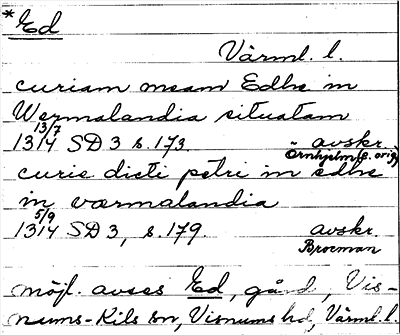 *Ed
Värml. l.
curiam meam Edhe in
Wermalandia situatam
13 13/7 14 SD 3 s. 173 avskr.
Örnhjelm (e. orig)
curie dicti petri in edhe
in værmalandia
13 5/9 14 SD 3, s. 179. avskr.
Brocman
möjl. avses Ed, gård, Vis-
nums-Kils sn, Visnums hd, Värml. l.